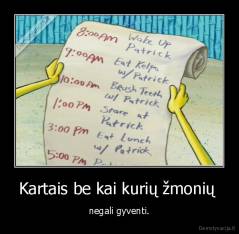 8:00AM Wake Up
Patrick
9:00AM Eat Kelp
w/ Patrick
10:00AM Brush Teeth
w/ Patrick
1:00 PM Stare at
Patrick
3:00 PM Eat Lunch
w/ Patrick
5:00 PM
Kartais be kai kurių žmonių
negali gyventi.